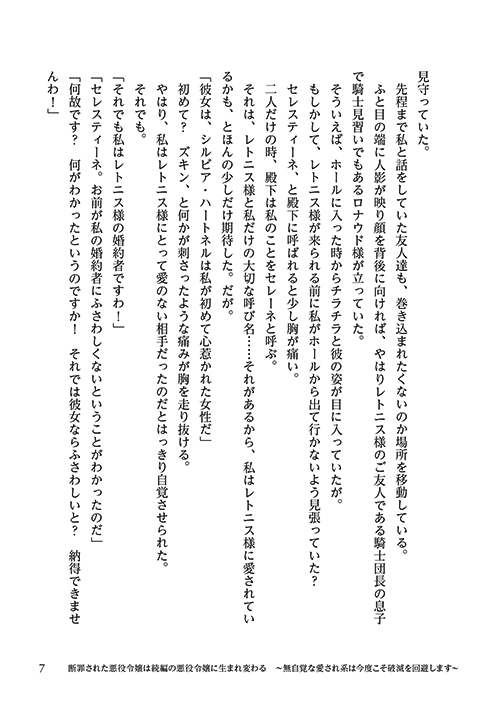 見守っていた。
先程まで私と話をしていた友人達も、巻き込まれたくないのか場所を移動している。
ふと目の端に人影が映り顔を背後に向ければ、やはりレトニス様のご友人である騎士団長の息子
で騎士見習いでもあるロナウド様が立っていた。
そういえば、ホールに入った時からチラチラと彼の姿が目に入っていたが。
もしかして、レトニス様が来られる前に私がホールから出て行かないよう見張っていた？
セレスティーネ、と殿下に呼ばれると少し胸が痛い。
二人だけの時、殿下は私のことをセレーネと呼ぶ。
それは、レトニス様と私だけの大切な呼び名……それがあるから、私はレトニス様に愛されてい
るかも、とほんの少しだけ期待した。だが。
「彼女は、シルビア・ハートネルは私が初めて心惹かれた女性だ」
初めて？　ズキン、と何かが刺さったような痛みが胸を走り抜ける。
やはり、私はレトニス様にとって愛のない相手だったのだとはっきり自覚させられた。
それでも。
「それでも私はレトニス様の婚約者ですわ！」
「セレスティーネ。お前が私の婚約者にふさわしくないということがわかったのだ」
「何故です？　何がわかったというのですか！　それでは彼女ならふさわしいと？　納得できませ
んわ！」
7　断罪された悪役令嬢は続編の悪役令嬢に生まれ変わる　～無自覚な愛され系は今度こそ破滅を回避します～